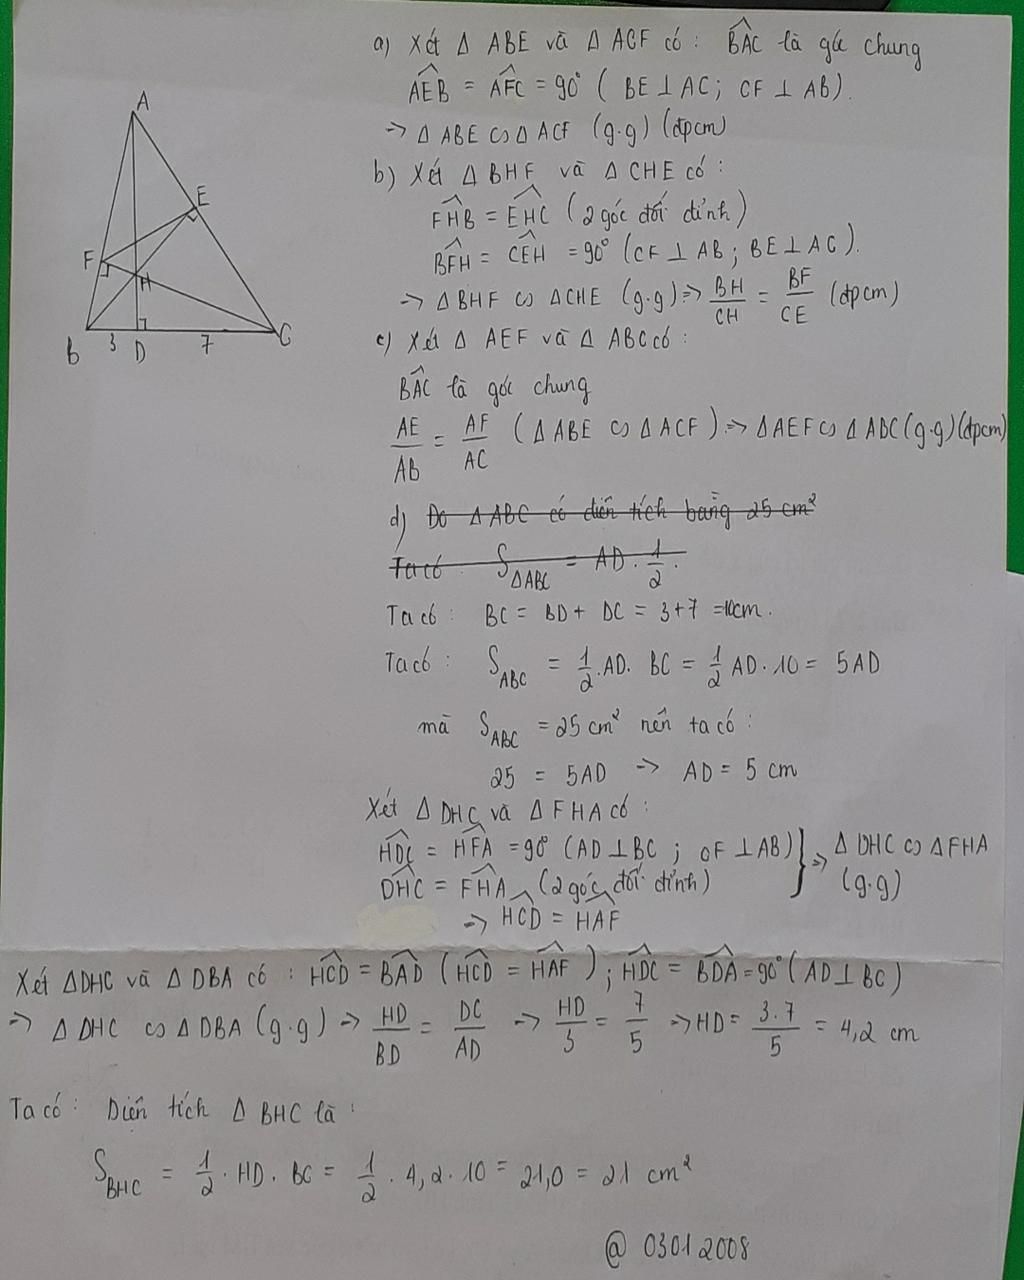 a) Xét Δ ABE và Δ ACF có : BÂC là góc chung
AÊB = AF̂C = 90° ( BE ⊥ AC; CF ⊥ AB).
→ Δ ABE ∽ Δ ACF (g.g) (đpcm)
b) Xét Δ BHF và Δ CHE có :
FĤB = EĤC (2 góc đối đỉnh)
BF̂H = CÊH = 90° (CF ⊥ AB ; BE ⊥ AC).
→ Δ BHF ∽ Δ CHE (g.g) => BH/CH = BF/CE (đpcm)
c) Xét Δ AEF và Δ ABC có :
BÂC là góc chung
AE/AB = AF/AC ( Δ ABE ∽ Δ ACF ) => Δ AEF ∽ Δ ABC (g.g) (đpcm)
d) Do Δ ABC có diện tích bằng 25 cm²
Ta có S ΔABC = AD . 1/2 .
Ta có : BC = BD + DC = 3+7 =10cm.
Ta có : S ABC = 1/2 . AD. BC = 1/2 AD . 10 = 5AD
mà S ABC = 25 cm² nên ta có :
25 = 5AD → AD = 5 cm
Xét Δ DHC và Δ FHA có :
HD̂C = HF̂A = 90° (AD ⊥ BC ; CF ⊥ AB) } => Δ DHC ∽ Δ FHA
DĤC = FĤA (2 góc đối đỉnh) (g.g)
→ HĈD = HÂF
Xét Δ DHC và Δ DBA có : HĈD = BÂD (HĈD = HÂF) ; HD̂C = BD̂A = 90° (AD ⊥ BC)
→ Δ DHC ∽ Δ DBA (g.g) → HD/BD = DC/AD → HD/3 = 7/5 → HD = 3.7/5 = 4,2 cm
Ta có : Diện tích Δ BHC là :
S BHC = 1/2 . HD . BC = 1/2 . 4,2 . 10 = 21,0 = 21 cm²
@ 03012008
A
E
F
H
B
3
D
7
C